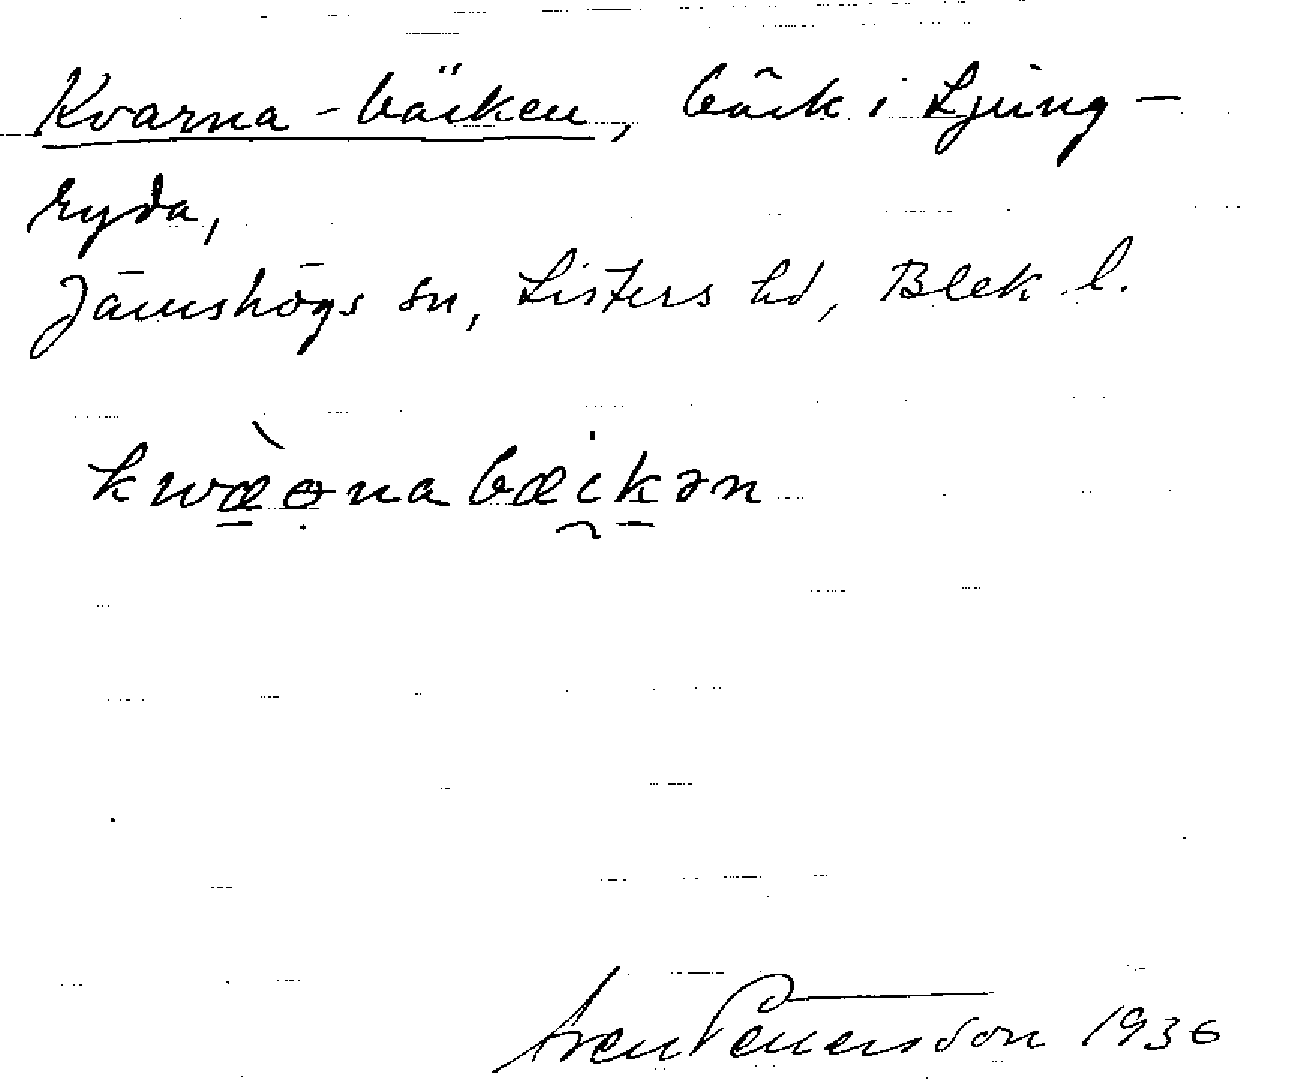 Kvarna-bäcken, bäck i Ljung-
ryda,
Jämshögs sn, Listers hd, Blek l.
kwæɵnabæikən
Sven Pettersson 1936